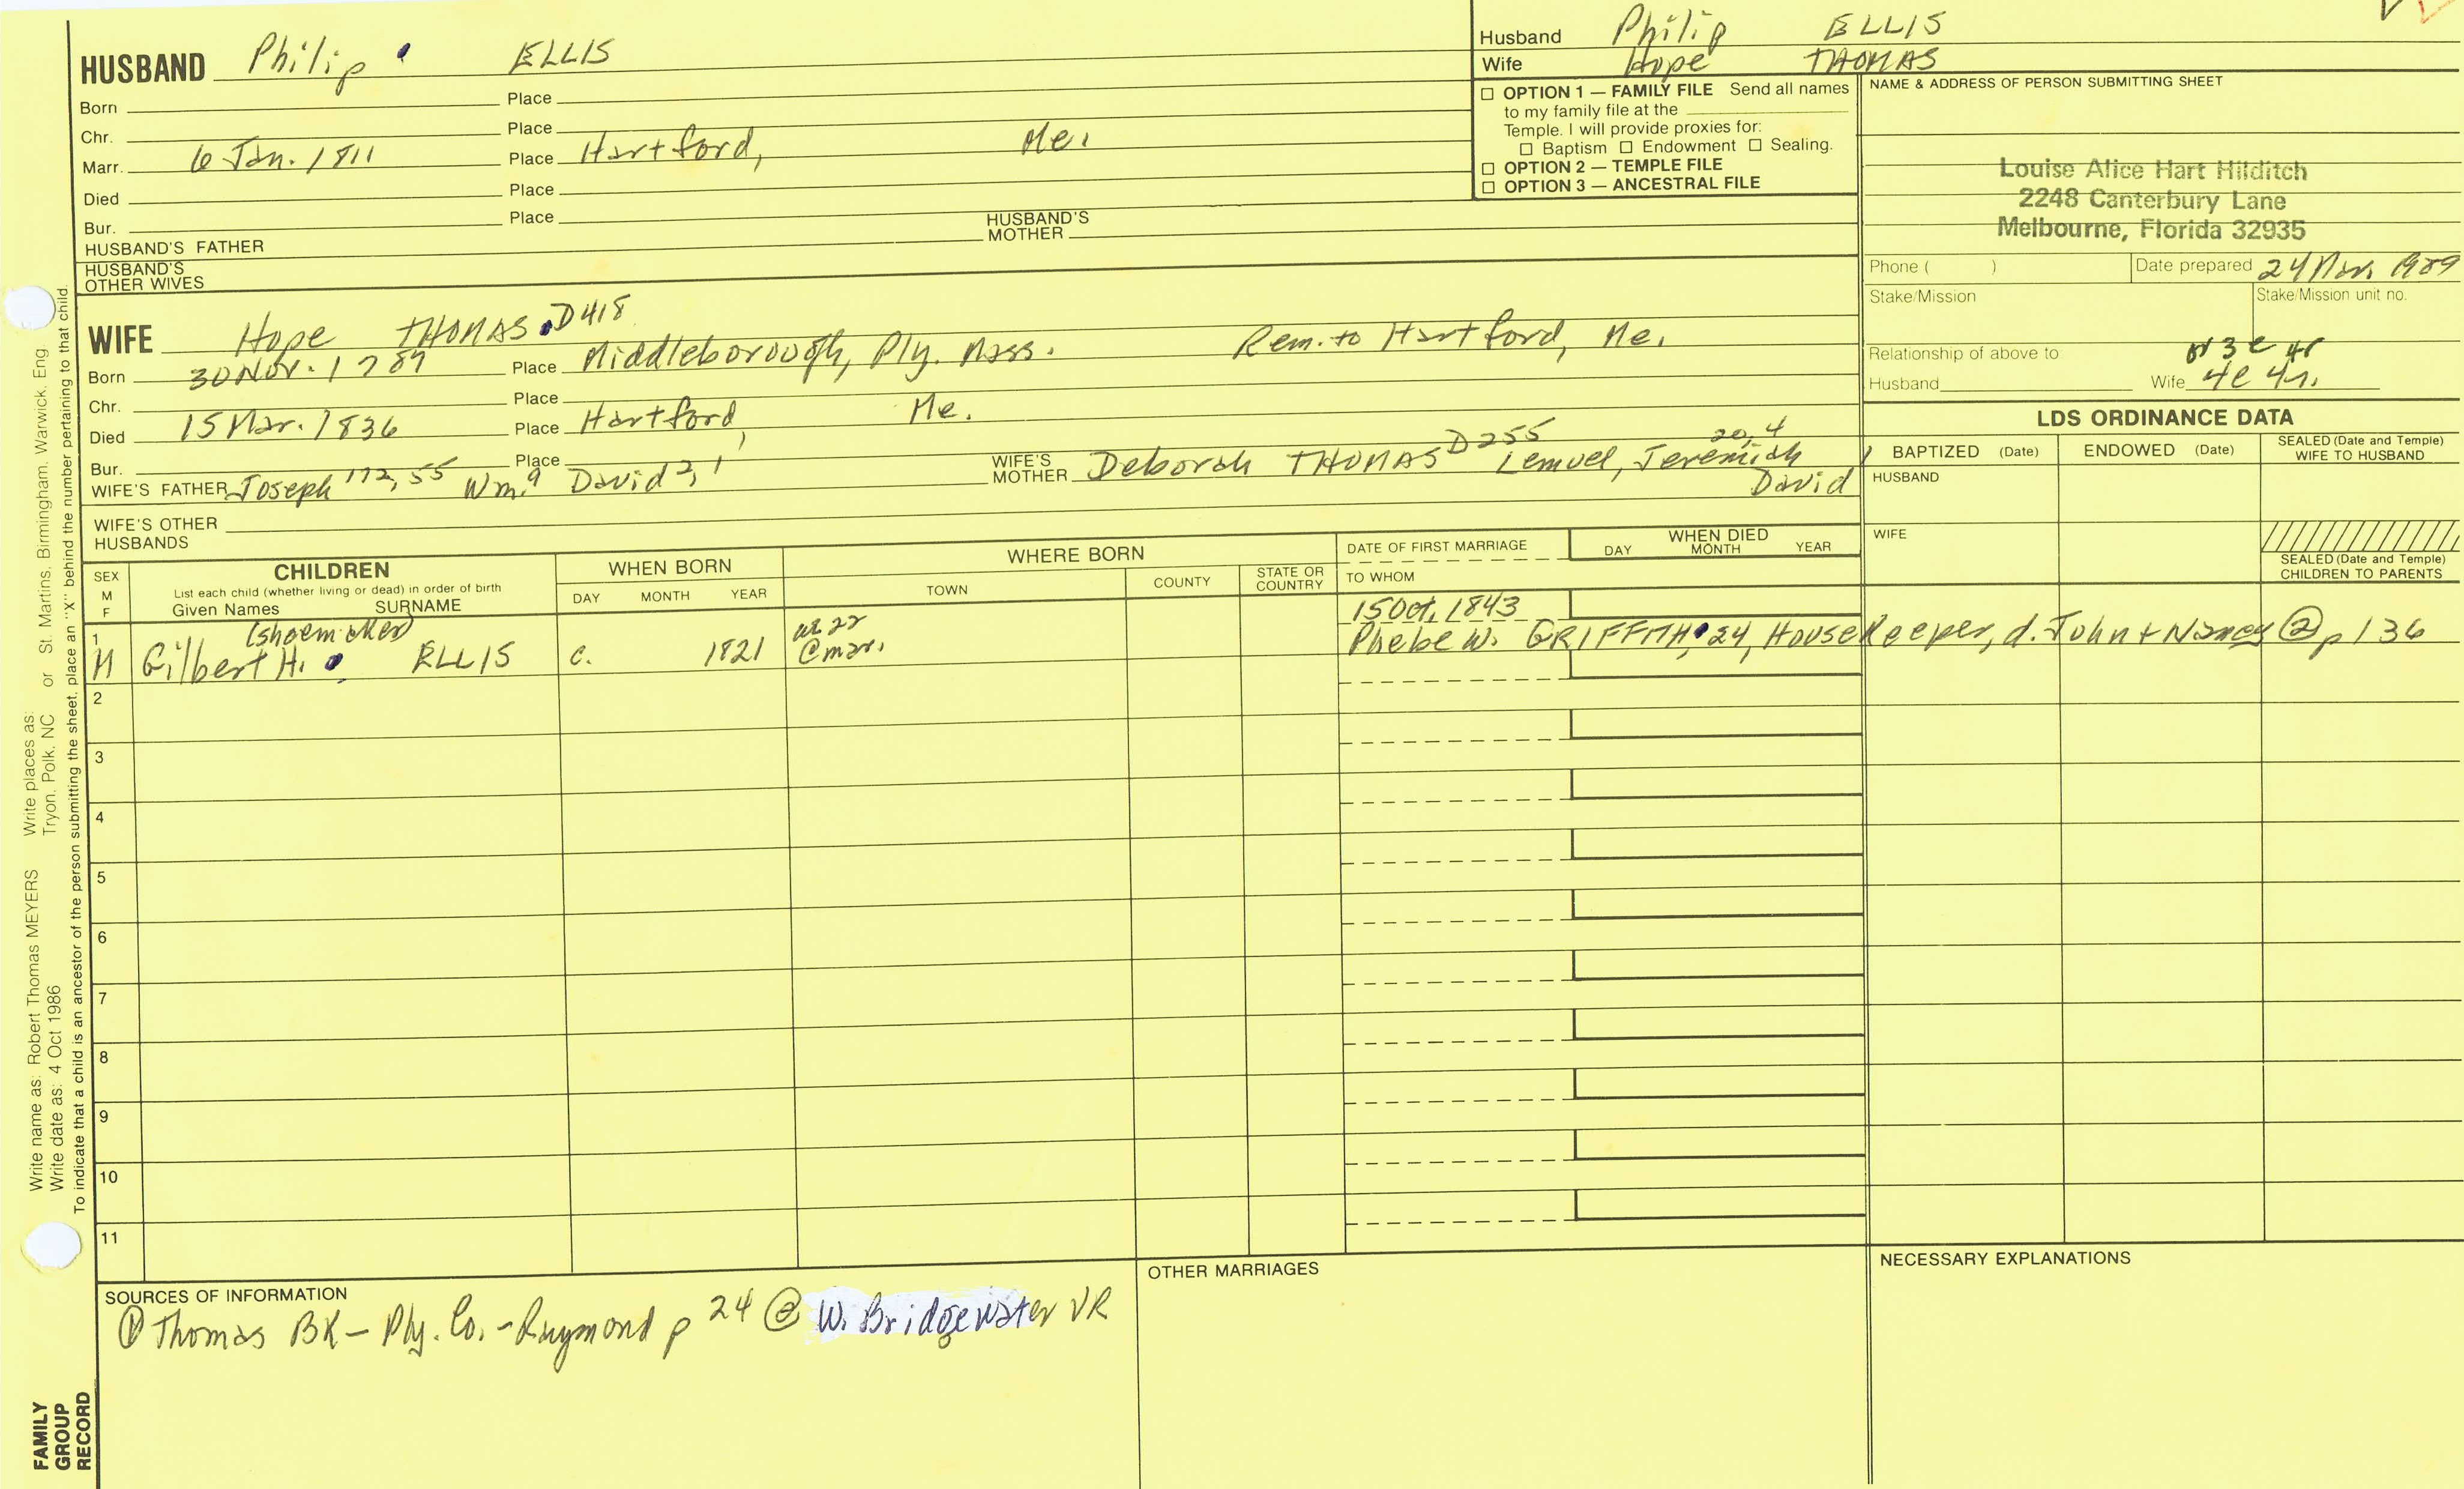 HUSBAND Philip ELLIS
Born Place
Chr. Place
Marr. 6 Jan. 1811 Place Hartford, Me.
Died Place
Bur. Place
HUSBAND'S FATHER HUSBAND'S MOTHER
HUSBAND'S OTHER WIVES
Husband Philip ELLIS
Wife Hope THOMAS
☐ OPTION 1 — FAMILY FILE Send all names
to my family file at the
Temple. I will provide proxies for:
☐ Baptism ☐ Endowment ☐ Sealing.
☐ OPTION 2 — TEMPLE FILE
☐ OPTION 3 — ANCESTRAL FILE
NAME & ADDRESS OF PERSON SUBMITTING SHEET
Louise Alice Hart Hilditch
2248 Canterbury Lane
Melbourne, Florida 32935
Phone ( ) Date prepared 24 1989
Stake/Mission Stake/Mission unit no.
Relationship of above to 3c 4r
Husband Wife 4c 4r.
WIFE Hope THOMAS D418
Born 30 Nov. 1789 Place Middleborough, Ply. Mass. Rem. to Hartford, Me.
Chr. Place
Died 15 Mar. 1836 Place Hartford, Me.
Bur. Place
WIFE'S FATHER Joseph 172, 55 Wm. 9 David 2, 1 WIFE'S MOTHER Deborah THOMAS D255 Lemuel, Jeremiah 20, 4
David
WIFE'S OTHER HUSBANDS
LDS ORDINANCE DATA
BAPTIZED (Date) ENDOWED (Date) SEALED (Date and Temple) WIFE TO HUSBAND
HUSBAND
WIFE
SEALED (Date and Temple) CHILDREN TO PARENTS
SEX M F
CHILDREN
List each child (whether living or dead) in order of birth
Given Names SURNAME
WHEN BORN
DAY MONTH YEAR
WHERE BORN
TOWN COUNTY STATE OR COUNTRY
DATE OF FIRST MARRIAGE
TO WHOM
WHEN DIED
DAY MONTH YEAR
1 (shoemaker) ae 22 15 Oct. 1843
M Gilbert H. ELLIS c. 1821 @ mar. Phebe W. GRIFFITH, 24, Housekeeper, d. John + Nancy ② p 136
2
3
4
5
6
7
8
9
10
11
SOURCES OF INFORMATION
① Thomas BK – Ply. Co. – Raymond p 24 ② W. Bridgewater VR
OTHER MARRIAGES
NECESSARY EXPLANATIONS
Write name as: Robert Thomas MEYERS Write places as: Tryon, Polk, NC or St. Martins, Birmingham, Warwick, Eng
Write date as: 4 Oct 1986
To indicate that a child is an ancestor of the person submitting the sheet, place an "X" behind the number pertaining to that child.
FAMILY
GROUP
RECORD